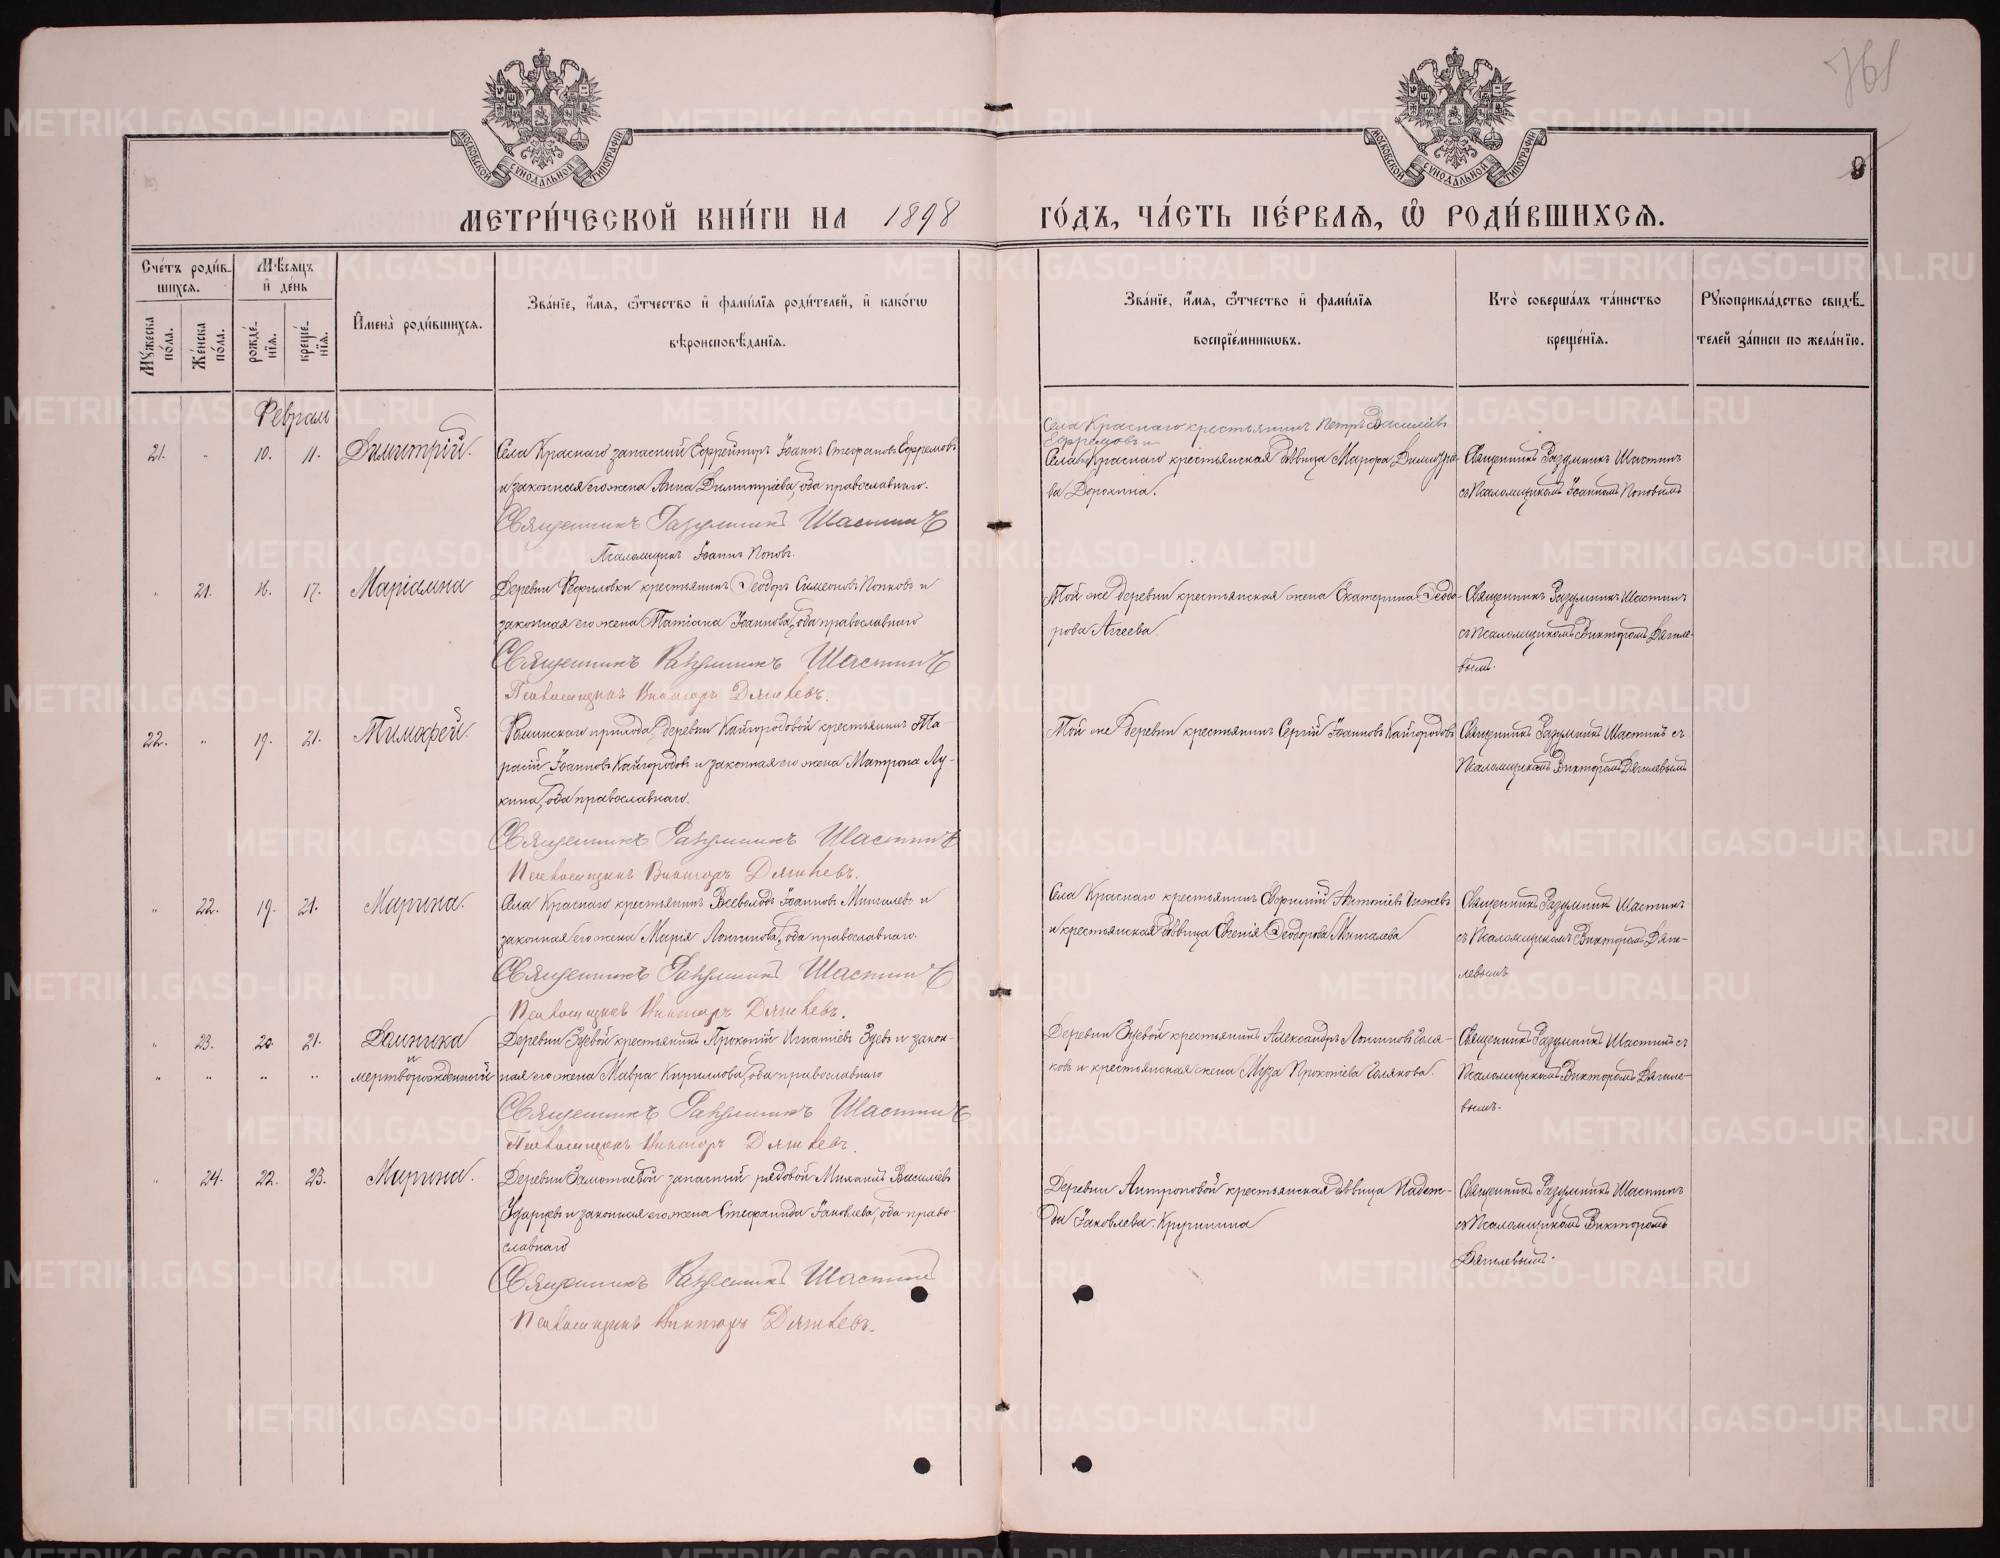 761
9
МОСКОВСКОЙ СУНОДАЛЬНОЙ ТИПОГРАФІИ
МОСКОВСКОЙ СУНОДАЛЬНОЙ ТИПОГРАФІИ
МЕТРИ́ЧЕСКОЙ КНИ́ГИ НА 1898 ГО́ДЪ, ЧА́СТЬ ПЕ́РВАѦ, Ѽ РОДИ́ВШИХСѦ.
Сче́тъ роди́в-
шихсѧ.
Мѣ́сѧцъ
и҆ де́нь
Мꙋ́жеска
по́ла.
Же́нска
по́ла.
рожде́-
нїѧ.
креще́-
нїѧ.
И҆мена̀ роди́вшихсѧ.
Зва́нїе, и҆́мѧ, ѻ҆́тчество и҆ фами́лїѧ роди́телей, и҆ како́гѡ
вѣроисповѣ́данїѧ.
Зва́нїе, и҆́мѧ, ѻ҆́тчество и҆ фами́лїѧ
воспрїе́мникѡвъ.
Кто̀ соверша́лъ та́инство
креще́нїѧ.
Рꙋкоприкла́дство свидѣ́-
телей за́писи по жела́нїю.
Февраль
21. " 10. 11. Димитрій.
Села Краснаго запасный Ефрейторъ Іоаннъ Стефановъ Ефремовъ
и законная его жена Анна Димитріева, оба православнаго.
Священникъ Разумникъ Шастинъ
Псаломщикъ Іоаннъ Поповъ.
Села Краснаго крестьянинъ Петръ Василіевъ
Ефремовъ и
Села Краснаго крестьянская дѣвица Марфа Димитріе-
ва Дорохина.
Священникъ Разумникъ Шастинъ
съ Псаломщикомъ Іоанномъ Поповымъ
" 21. 16. 17. Маріамна
крестьянинъ Ѳеодоръ Симеоновъ Попковъ и
законная его жена Татіана Іоаннова, оба православнаго
Священникъ Разумникъ Шастинъ
Псаломщикъ Викторъ Дягилевъ.
Той же деревни крестьянская жена Екатерина Ѳеодо-
рова Агеева.
Священникъ Разумникъ Шастинъ
съ Псаломщикомъ Викторомъ Дягиле-
вымъ.
22. " 19. 21. Тимофей.
прихода, деревни Кайгородовой крестьянинъ Та-
расій Іоанновъ Кайгородовъ и законная его жена Матрона Лу-
кина, оба православнаго.
Священникъ Разумникъ Шастинъ
Псаломщикъ Викторъ Дягилевъ.
Той же деревни крестьянинъ Сергій Іоанновъ Кайгородовъ
Священникъ Разумникъ Шастинъ съ
Псаломщикомъ Викторомъ Дягилевымъ
" 22. 19. 21. Марина.
Села Краснаго крестьянинъ Всеволодъ Іоанновъ Мингалевъ и
законная его жена Марія Логинова, оба православнаго.
Священникъ Разумникъ Шастинъ
Псаломщикъ Викторъ Дягилевъ.
Села Краснаго крестьянинъ Антоніевъ
и крестьянская дѣвица Евгенія Ѳеодорова Мингалева
Священникъ Разумникъ Шастинъ
съ Псаломщикомъ Викторомъ Дяги-
левымъ
" 23. 20. 21. Домника
и
" " " " мертворожденный
Деревни Зуевой крестьянинъ Прокопій Игнатіевъ Зуевъ и закон-
ная его жена Мавра Кириллова, оба православнаго
Священникъ Разумникъ Шастинъ
Псаломщикъ Викторъ Дягилевъ.
Деревни Зуевой крестьянинъ Александръ Логиновъ Голя-
ковъ и крестьянская жена Муза Прокопіева Голякова.
Священникъ Разумникъ Шастинъ съ
Псаломщикомъ Викторомъ Дягиле-
вымъ.
" 24. 22. 23. Марина.
Деревни запасный рядовой Михаилъ Василіевъ
и законная его жена Стефанида Іаковлева, оба право-
славнаго
Священникъ Разумникъ Шастинъ
Псаломщикъ Викторъ Дягилевъ.
Деревни Антроповой крестьянская дѣвица Надеж-
да Іаковлева
Священникъ Разумникъ Шастинъ
съ Псаломщикомъ Викторомъ
Дягилевымъ.
METRIKI.GASO-URAL.RU